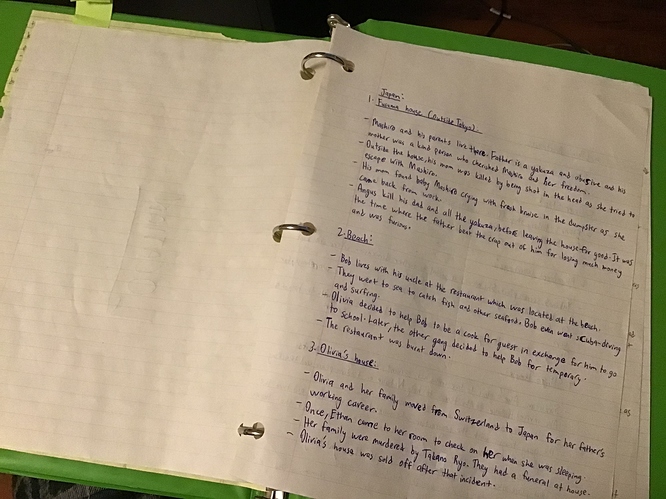 Japan:
1. Fuyuma house (outside Tokyo):
- Mashiro and his parents live there. Father is a yakuza and abusive and his
mother was a kind person who cherished Mashiro and her freedom.
- Outside the house, his mom was killed by being shot in the head as she tried to
escape with Mashiro.
- His mom found baby Mashiro crying with fresh bruise in the dumpster as she
came back from work.
- Angus kill his dad and all the yakuza, before leaving the house for good. It was
the time where the father beat the crap out of him for losing much money
and was furious.
2. Beach:
- Bob lives with his uncle at the restaurant which was located at the beach.
- They went to sea to catch fish and other seafoods. Bob even went scuba-driving
and surfing.
- Olivia decided to help Bob to be a cook for guest in exchange for him to go
to school. Later, the other gang decided to help Bob for temporary.
- The restaurant was burnt down.
3. Olivia's house:
- Olivia and her family moved from Switzerland to Japan for her father's
working career.
- Once, Ethan came to her room to check on her when she was sleeping.
- Her family were murdered by Takano Ryo. They had a funeral at house.
- Olivia's house was sold off after that incident.